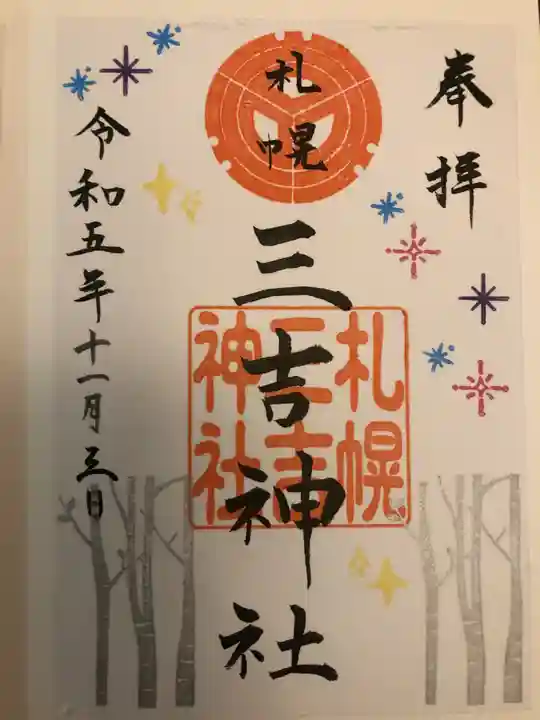 奉拝
札幌
三吉神社
札幌
三吉
神社
令和五年十一月三日